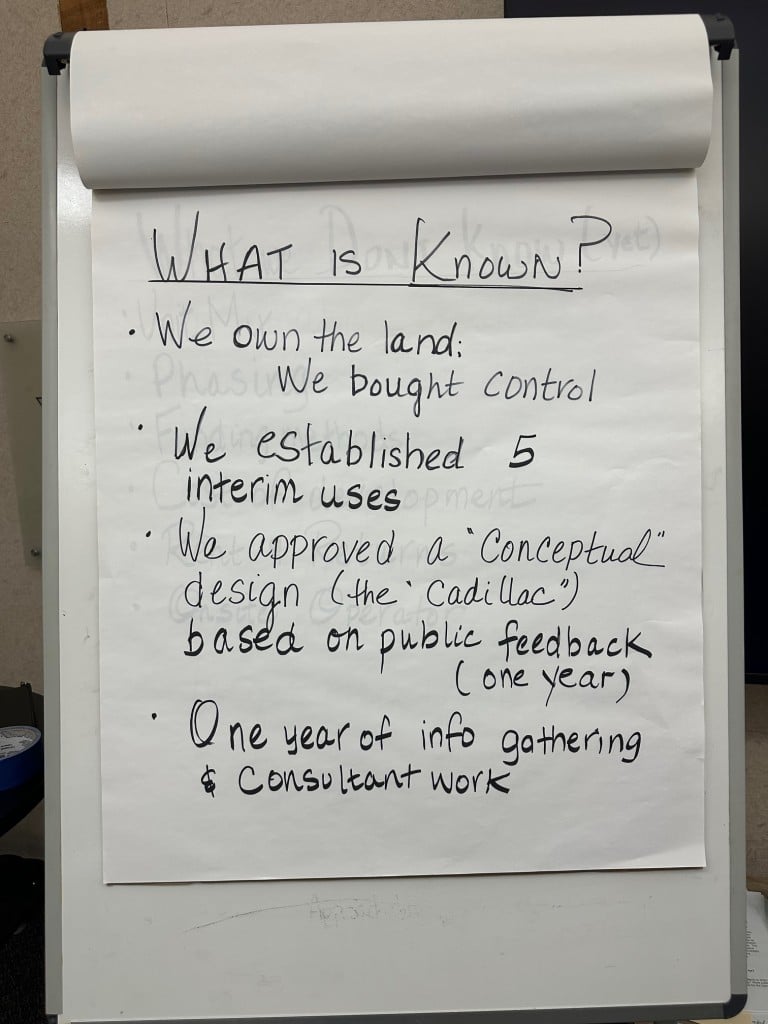 WHAT IS KNOWN?
• We own the land:
We bought control
• We established 5
interim uses
• We approved a "Conceptual"
design (the "Cadillac")
based on public feedback
(one year)
• One year of info gathering
& Consultant work